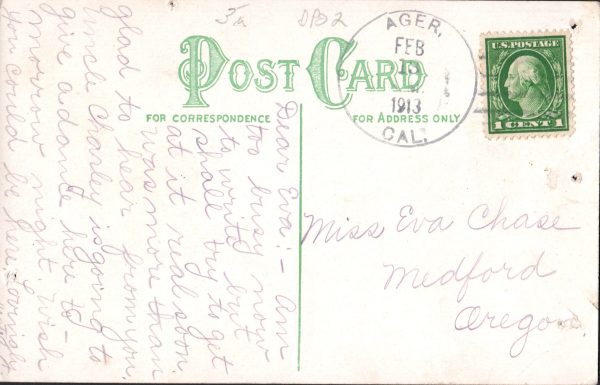 5a DPB2
POST CARD
FOR CORRESPONDENCE
FOR ADDRESS ONLY
AGER,
FEB
1913
CAL.
U.S. POSTAGE
1 CENT 1
Dear Eva:- Am
too busy now
to write but
shall try to get
at it real soon.
Was more than
glad to hear from you.
Uncle Charley is going to
give a dance here to-
morrow night. Wish
you could be here.
Miss Eva Chase
Medford
Oregon